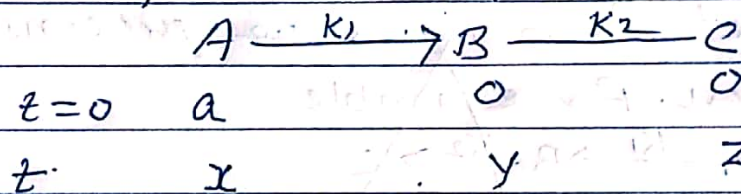 A —K1→ B —K2— C
t=0 a 0 0
t. x y z